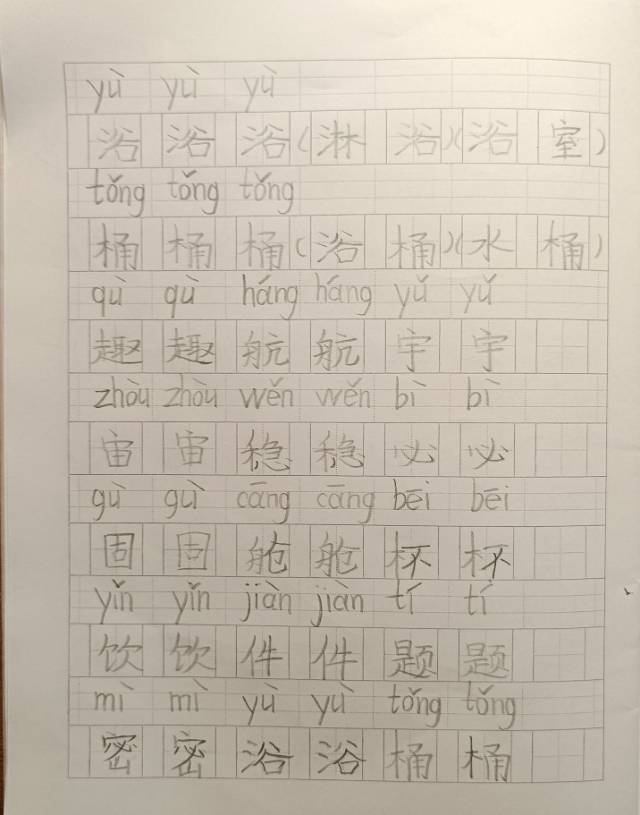 yù yù yù
浴 浴 浴(淋 浴)(浴 室)
tǒng tǒng tǒng
桶 桶 桶(浴 桶)(水 桶)
qù qù háng háng yǔ yǔ
趣 趣 航 航 宇 宇
zhòu zhòu wěn wěn bì bì
宙 宙 稳 稳 必 必
gù gù cāng cāng bēi bēi
固 固 舱 舱 杯 杯
yǐn yǐn jiàn jiàn tí tí
饮 饮 件 件 题 题
mì mì yù yù tǒng tǒng
密 密 浴 浴 桶 桶